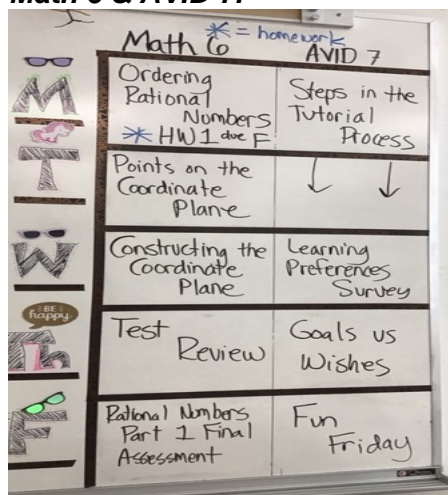 Math 6 & AVID 7!
* = homework
Math 6
AVID 7
M
Ordering
Rational
Numbers
* HW 1 due F
Steps in the
Tutorial
Process
T
Points on the
Coordinate
Plane
↓ ↓
W
Constructing the
Coordinate
Plane
Learning
Preferences
Survey
BE
happy
Th
Test
Review
Goals vs
Wishes
F
Rational Numbers
Part 1 Final
Assessment
Fun
Friday